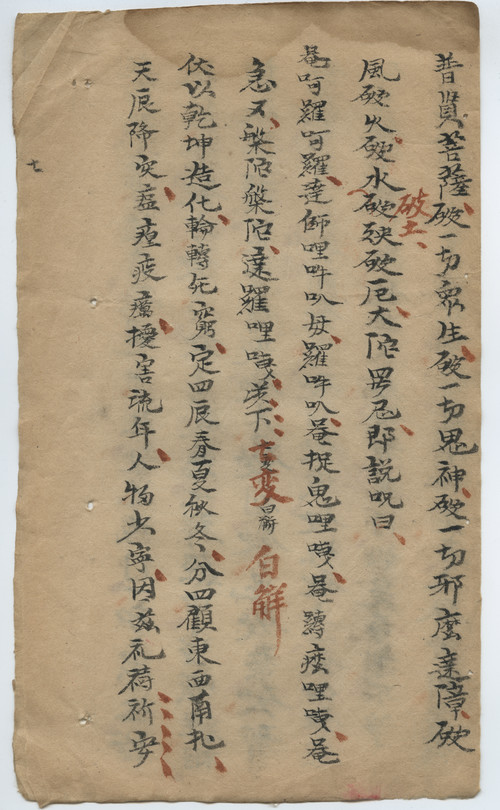 普賢菩薩破一切眾生破一切鬼神破一切邪魔業障破
風破火破水破殃破厄大陀罗尼即説呪曰
破土
奄呵羅呵羅達师哩吽叭母羅吽叭奄捉鬼哩曳奄轉癦哩曳奄
急叉槃陀槃陀達羅哩曳 下七変白解
伏以乾坤造化輪轉死窮定四辰春夏秋冬分四顧東西南北
天辰降灾瘟瘟疫 擾害流年人物少寧因兹礼荷祈安
七